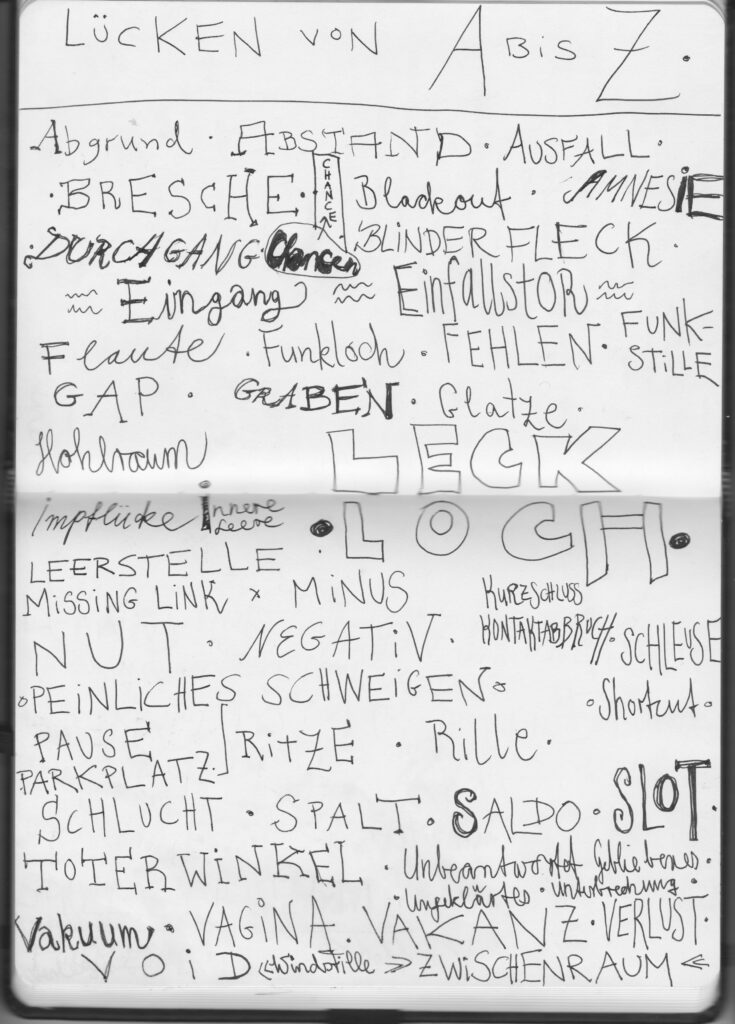 LÜCKEN VON A BIS Z.
Abgrund · ABSTAND · AUSFALL ·
· BRESCHE · CHANCE Blackout · AMNESIE
· DURCHGANG · Chancen · BLINDER FLECK ·
≈ Eingang ≈ Einfallstor ≈
Flaute · Funkloch · FEHLEN · FUNK-
STILLE
GAP · GRABEN · Glatze ·
Hohlraum LECK
Impflücke Innere
Leere
· LOCH ·
LEERSTELLE
MISSING LINK x MINUS KURZSCHLUSS
NUT · NEGATIV · KONTAKTABBRUCH · SCHLEUSE
° PEINLICHES SCHWEIGEN ° ° Shortcut ·
PAUSE RITZE · Rille ·
PARKPLATZ
SCHLUCHT · SPALT · SALDO · SLOT ·
TOTER WINKEL · Unbeantwortet Gebliebenes ·
· Ungeklärtes · Unterbrechung ·
Vakuum · VAGINA · VAKANZ · VERLUST ·
VOID «Windstille » ZWISCHENRAUM «